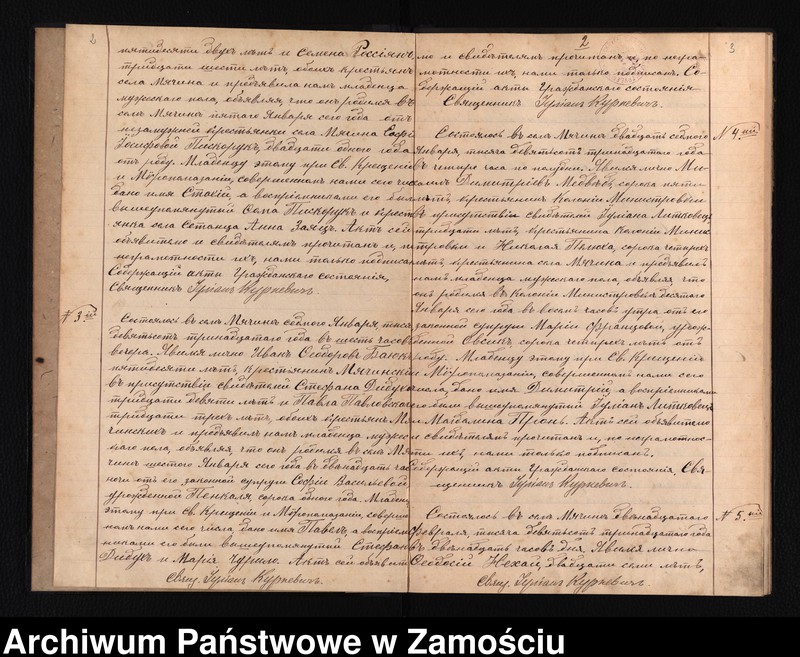 2
пятидесяти двухъ лѣтъ и Семена Россіянъ,
тридцати шести лѣтъ, обоихъ крестьянъ
села Мячина и предъявила намъ младенца
мужескаго пола, объявляя, что онъ родился въ
селѣ Мячинѣ пятаго Января сего года отъ
незамужней крестьянки села Мячина Софіи
Іосифовой Пискорукъ, двадцати одного года
отъ роду. Младенцу этому при Св. Крещеніи
и Мѵропомазаніи, совершенномъ нами сего числа
дано имя Стахій, а воспріемниками его были
вышеупомянутый Пискорукъ и крест
янка села Анна Заяцъ. Актъ сей
объявителю и свидѣтелямъ прочитанъ и, по
неграмотности ихъ, нами только подписанъ.
Содержащій акты Гражданскаго состоянія,
Священникъ Іуліанъ Куркевичъ.
№ 3.ій
Состоялось въ селѣ Мячинѣ седмого Января, тысяча
девятьсотъ тринадцатаго года въ шесть часовъ
вечера. Явился лично Иванъ Ѳеодоровъ
пятидесяти лѣтъ, крестьянинъ Мячинскій
въ присутствіи свидѣтелей Стефана Дидуха
тридцати девяти лѣтъ и Павла Павловскаго
тридцати трехъ лѣтъ, обоихъ крестьянъ Мя-
чинскихъ и предъявилъ намъ младенца мужес-
каго пола, объявляя, что онъ родился въ селѣ Мя-
чинѣ шестого Января сего года въ двѣнадцать час.
ночи отъ его законной супруги Софіи Васильевой,
урожденной Пенкаля, сорока одного года. Младенцу
этому при св. Крещеніи и Мѵропомазаніи, соверш-
номъ нами сего числа, дано имя Павелъ, а воспріем-
никами его были вышеупомянутый Стефанъ
Дидухъ и Марія Чурило. Актъ сей объявит
Свящ. Іуліанъ Куркевичъ.
2
3
лю и свидѣтелямъ прочитанъ и, по негра-
мотности ихъ, нами только подписанъ. Со-
держащій акты Гражданскаго состоянія
Священникъ Іуліанъ Куркевичъ.
№ 4.ый
Состоялось въ селѣ Мячинѣ двадцать седмого
Января, тысяча девятьсотъ тринадцатаго года
въ четыре часа по полудни. Явился лично Ми-
хаилъ Димитріевъ Медвѣдь, сорока пяти
лѣтъ, крестьянинъ Колоніи Министровки
въ присутствіи свидѣтелей Іуліана Литковца
тридцати лѣтъ, крестьянина Колоніи Минис-
тровки и Николая сорока четырехъ
лѣтъ, крестьянина села Мячина и предъявилъ
намъ младенца мужескаго пола, объявляя, что
онъ родился въ Колоніи Министровкѣ десятаго
Января сего года въ восемь часовъ утра отъ его
законной супруги Маріи Францовой, урож-
денной Овсикъ, сорока четырехъ лѣтъ отъ
роду. Младенцу этому при Св. Крещеніи
и Мѵропомазаніи, совершенномъ нами сего
числа, дано имя Димитрій, а воспріемниками
его были вышеупомянутый Іуліанъ Литковецъ
и Магдалина Пронь. Актъ сей объявителю
и свидѣтелямъ прочитанъ и, по неграмотнос-
ти ихъ, нами только подписанъ.
Содержащій акты Гражданскаго состоянія, Свя-
щенникъ Іуліанъ Куркевичъ.
№ 5.ый
Состоялось въ селѣ Мячинѣ двѣнадцатаго
Февраля, тысяча девятьсотъ тринадцатаго года
въ двѣнадцать часовъ дня. Явился лично
Ѳеодосій Нехай, двадцати семи лѣтъ,
Свящ. Іуліанъ Куркевичъ.
Archiwum Państwowe w Zamościu